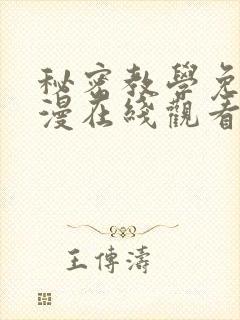 秘密教學免
漫在綫觀看
王傳濤